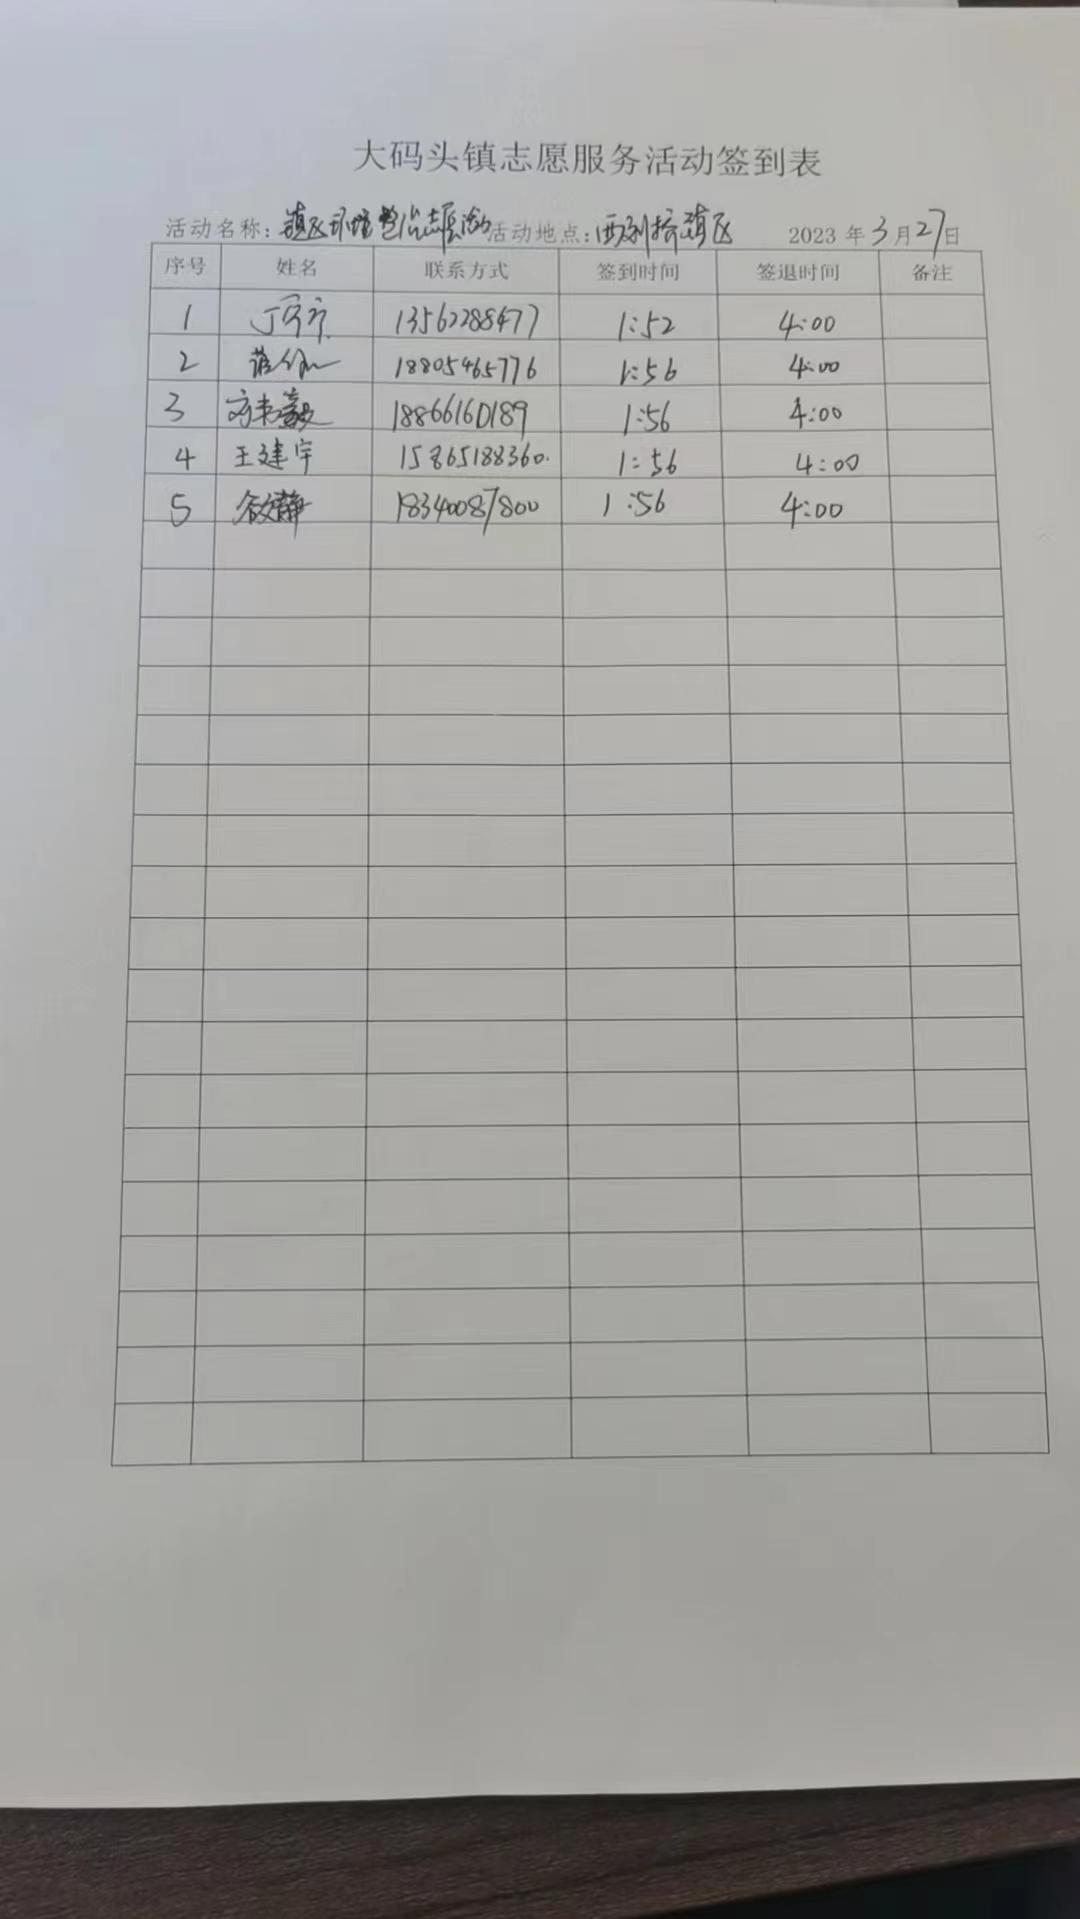 大码头镇志愿服务活动签到表
活动名称:镇区环境整治志愿活动 活动地点:西刘桥镇区 2023年3月27日
序号 姓名 联系方式 签到时间 签退时间 备注
1 13562288477 1:52 4:00
2 18805465776 1:56 4:00
3 18866160189 1:56 4:00
4 王建宇 15865188360 1:56 4:00
5 18340087800 1:56 4:00